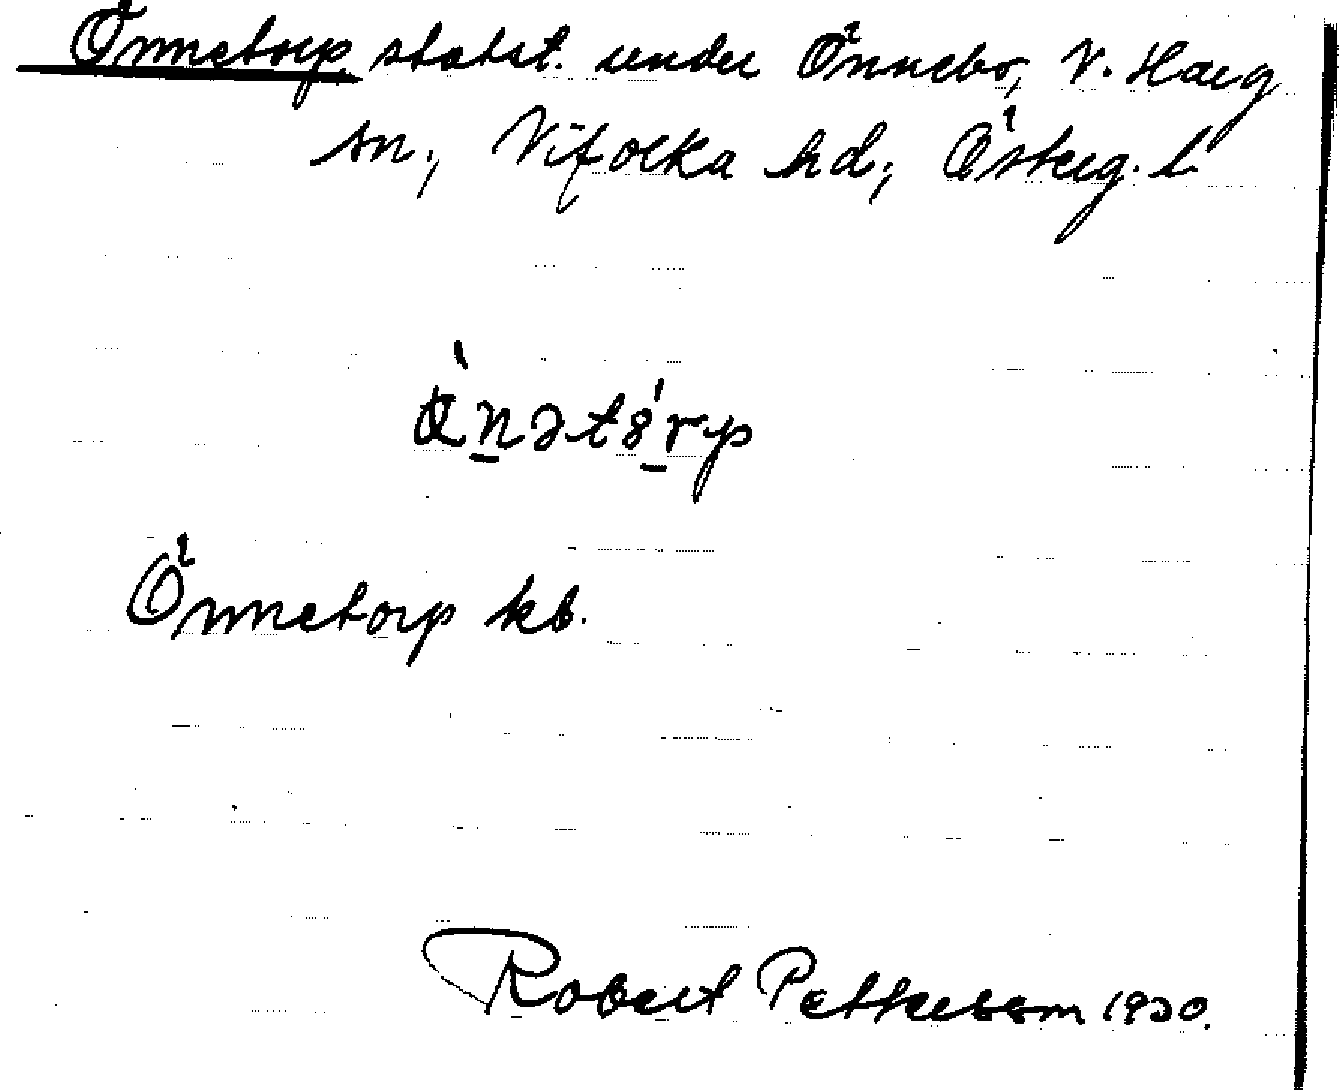 Önnetorp statst. under Önnebo, V. Harg
sn, Vifolka hd, Österg. l
Önnetorp kb.
Robert Pettersson 1930.